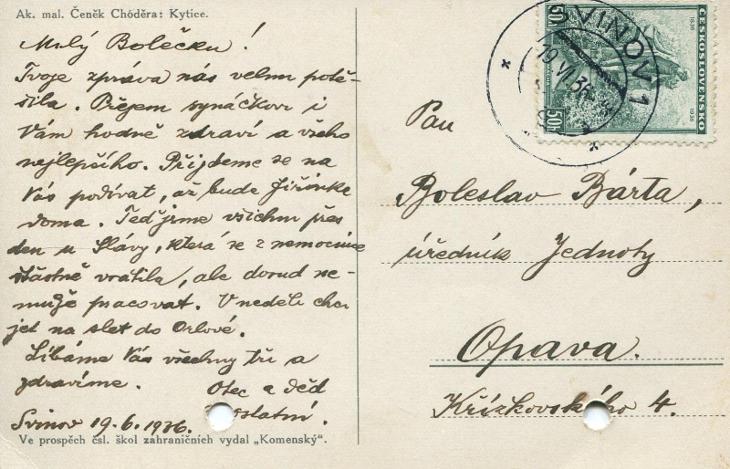 Ak. mal. Čeněk Chóděra: Kytice.
Milý Bolečku!
Tvoje zpráva nás velmi potě-
šila. Přejem synáčkovi i
Vám hodně zdraví a všeho
nejlepšího. Přijdeme se na
Vás podívat, až bude Jiřinka
doma. Teď jsme všichni přes
den u Slávy, která se z nemocnice
šťastně vrátila, ale dosud ne-
může pracovat. V neděli chci
jet na slet do Orlové.
Líbáme Vás všechny tři a
zdravíme. Otec a děd
ostatní.
Svinov 19.6.1936.
Ve prospěch čsl. škol zahraničních vydal „Komenský".
VINOV 1
19 VI 36
ČESKOSLOVENSKO
50h
50h
1936
1936
Pan
Boleslav Bárta,
úředník Jednoty
Opava.
Křížkovského 4.